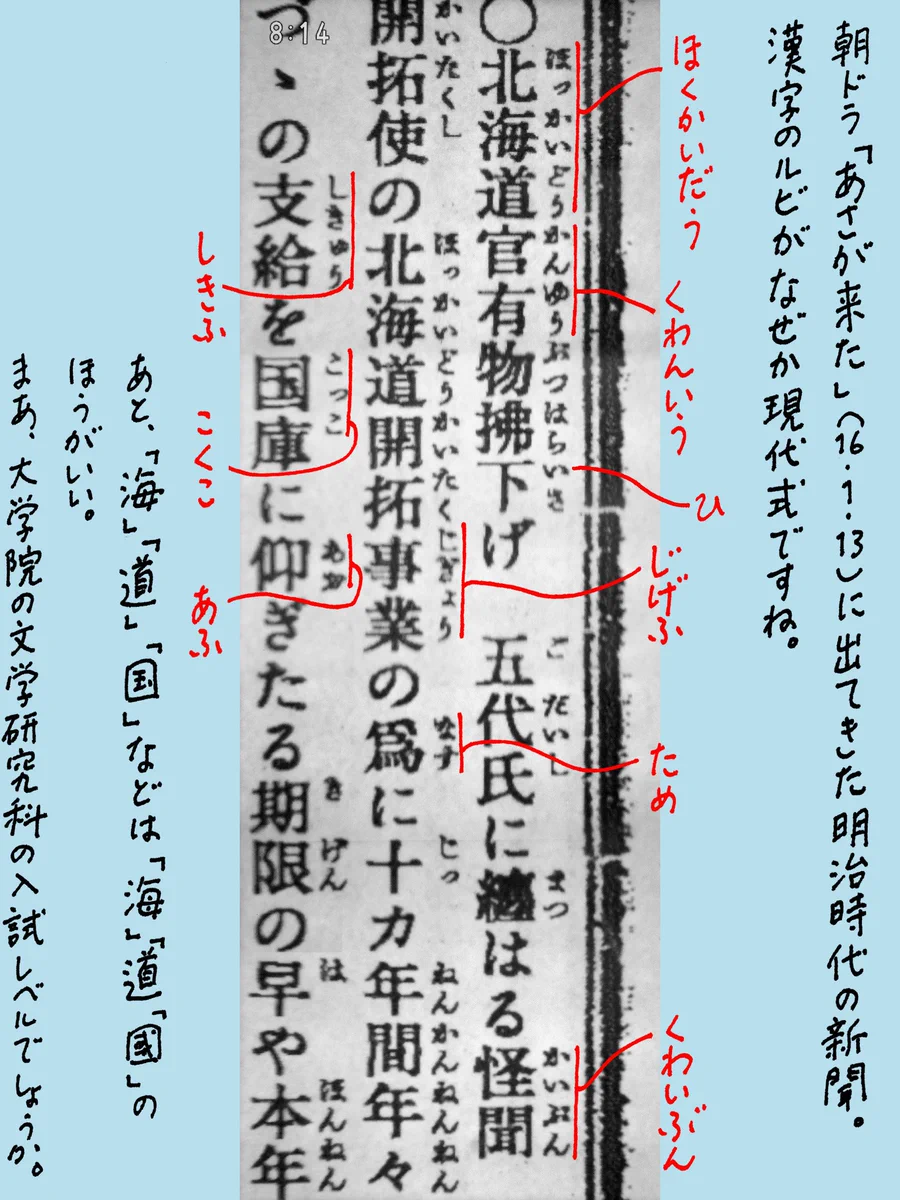 朝ドラ「あさが来た」(16.1.13)に出てきた明治時代の新聞。
漢字のルビがなぜか現代式ですね。
ほくかいだう
くわんいう
ひ
じげふ
ため
くわいぶん
8:14
ほっかいどうかんゆうぶつはらいさ ごだいし まつ かいぶん
○北海道官有物拂下げ 五代氏に纏はる怪聞
かいたくし ほっかいどうかいたくじぎょう なす じっ ねんかんねんねん
開拓使の北海道開拓事業の爲に十カ年間年々
しきゅう こっこ あお きげん は ほんねん
づゝの支給を国庫に仰ぎたる期限の早や本年
しきふ
こくこ
あふ
あと、「海」「道」「国」などは「海」「道」「國」の
ほうがいい。
まあ、大学院の文学研究科の入試レベルでしょうか。